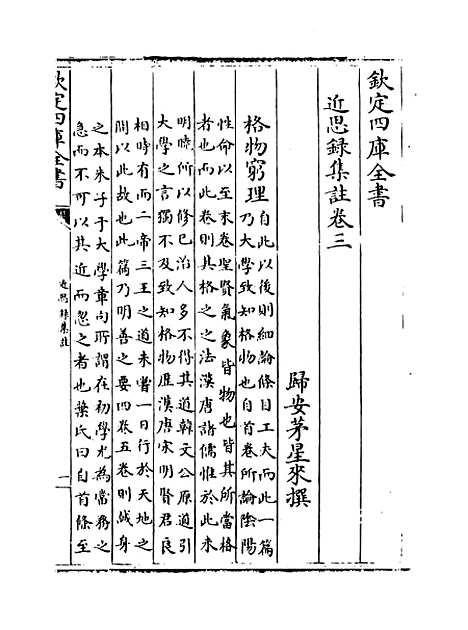 欽定四庫全書
近思録集註卷三
歸安茅星來撰
格物窮理
自此以後則細論條目工夫而此一篇
乃大學致知格物也自首卷所論陰陽
性命以至末卷聖賢氣象皆物也皆其所當格
者也而此卷則其格之之法漢唐諸儒惟於此未
明所以修已治人多不得其道韓文公原道引
大學之言獨不及致知格物歴漢唐宋明賢君良
相時有而二帝三王之道未嘗一日行於天地之
間以此故也此篇乃明善之要四卷五卷則誠身
之本朱子于大學章句所謂在初學尤為當務之
急而不可以其近而忽之者也葉氏曰自首條至
欽定四庫全書
近思録集註
一